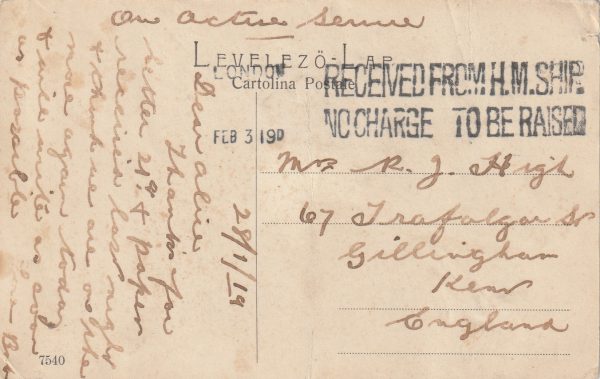 On Active Service
LEVELEZŐ-LAP
Cartolina Postale
LONDON
FEB 3 19
RECEIVED FROM H.M. SHIP.
NO CHARGE TO BE RAISED
Mrs R. J. High
67 Trafalgar St
Gillingham
Kent
England
28/1/19
Dear Alice
Thanks for
letter 21st & paper
received last night
& think we are on the
move again today
& will write as soon
as possible
7540